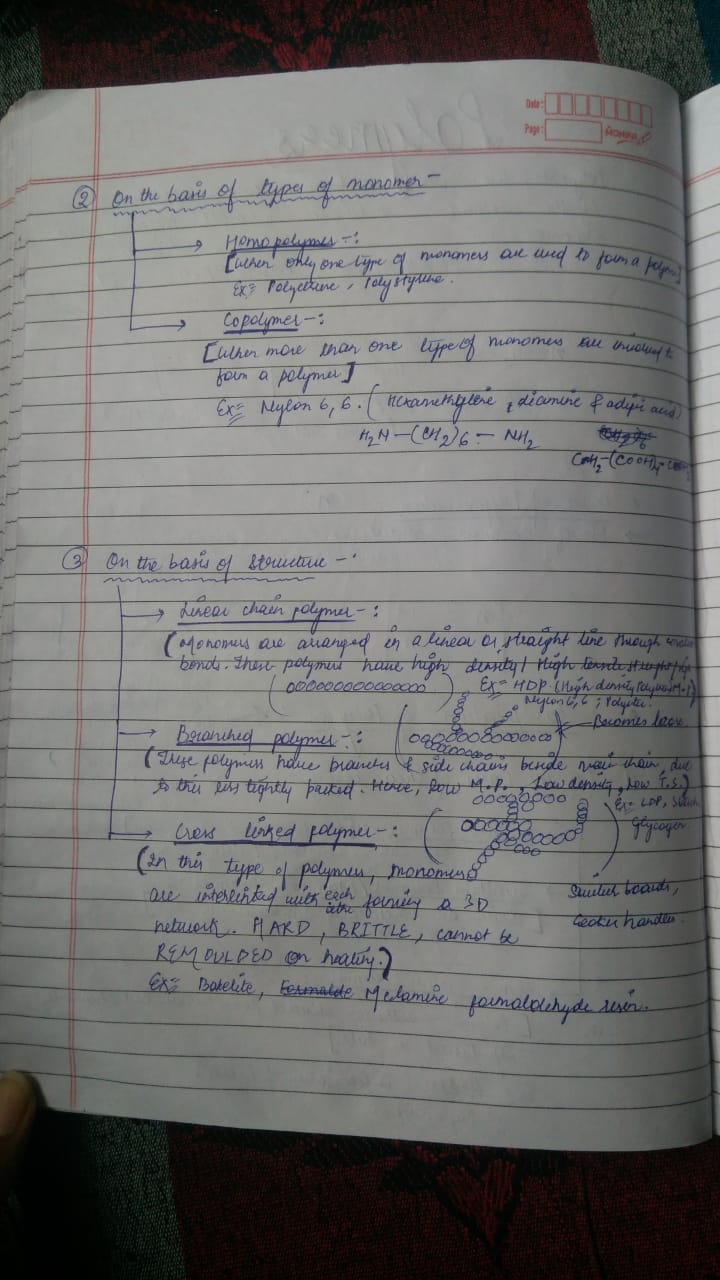 Date:
Page:
② On the basis of types of monomer -
Homopolymer -:
[When only one type of monomers are used to form a polymer]
Ex= Polyethene, Polystyrene.
Copolymer -:
[When more than one type of monomers are involved to
form a polymer]
Ex= Nylon 6,6. (Hexamethylene, diamine & adipic acid)
H₂N-(CH₂)6-NH₂
③ On the basis of structure -:
Linear chain polymer -:
(Monomers are arranged in a linear or straight line through
bonds. These polymers have high density / High
Ex= HDP (High density
Nylon 6,6;
Branched polymer -:
Becomes
(These polymers have branches & side chains beside main chain, due
to this less tightly packed. Hence, low M.P., Low density, Low T.S.)
Ex= LDP,
Glycogen
Cross linked polymer -:
(In this type of polymer, monomers
are interlinked with each other forming a 3D
boards,
network. HARD, BRITTLE, cannot be
handles
REMOULDED on heating.)
Ex= Bakelite, Melamine formaldehyde resin.